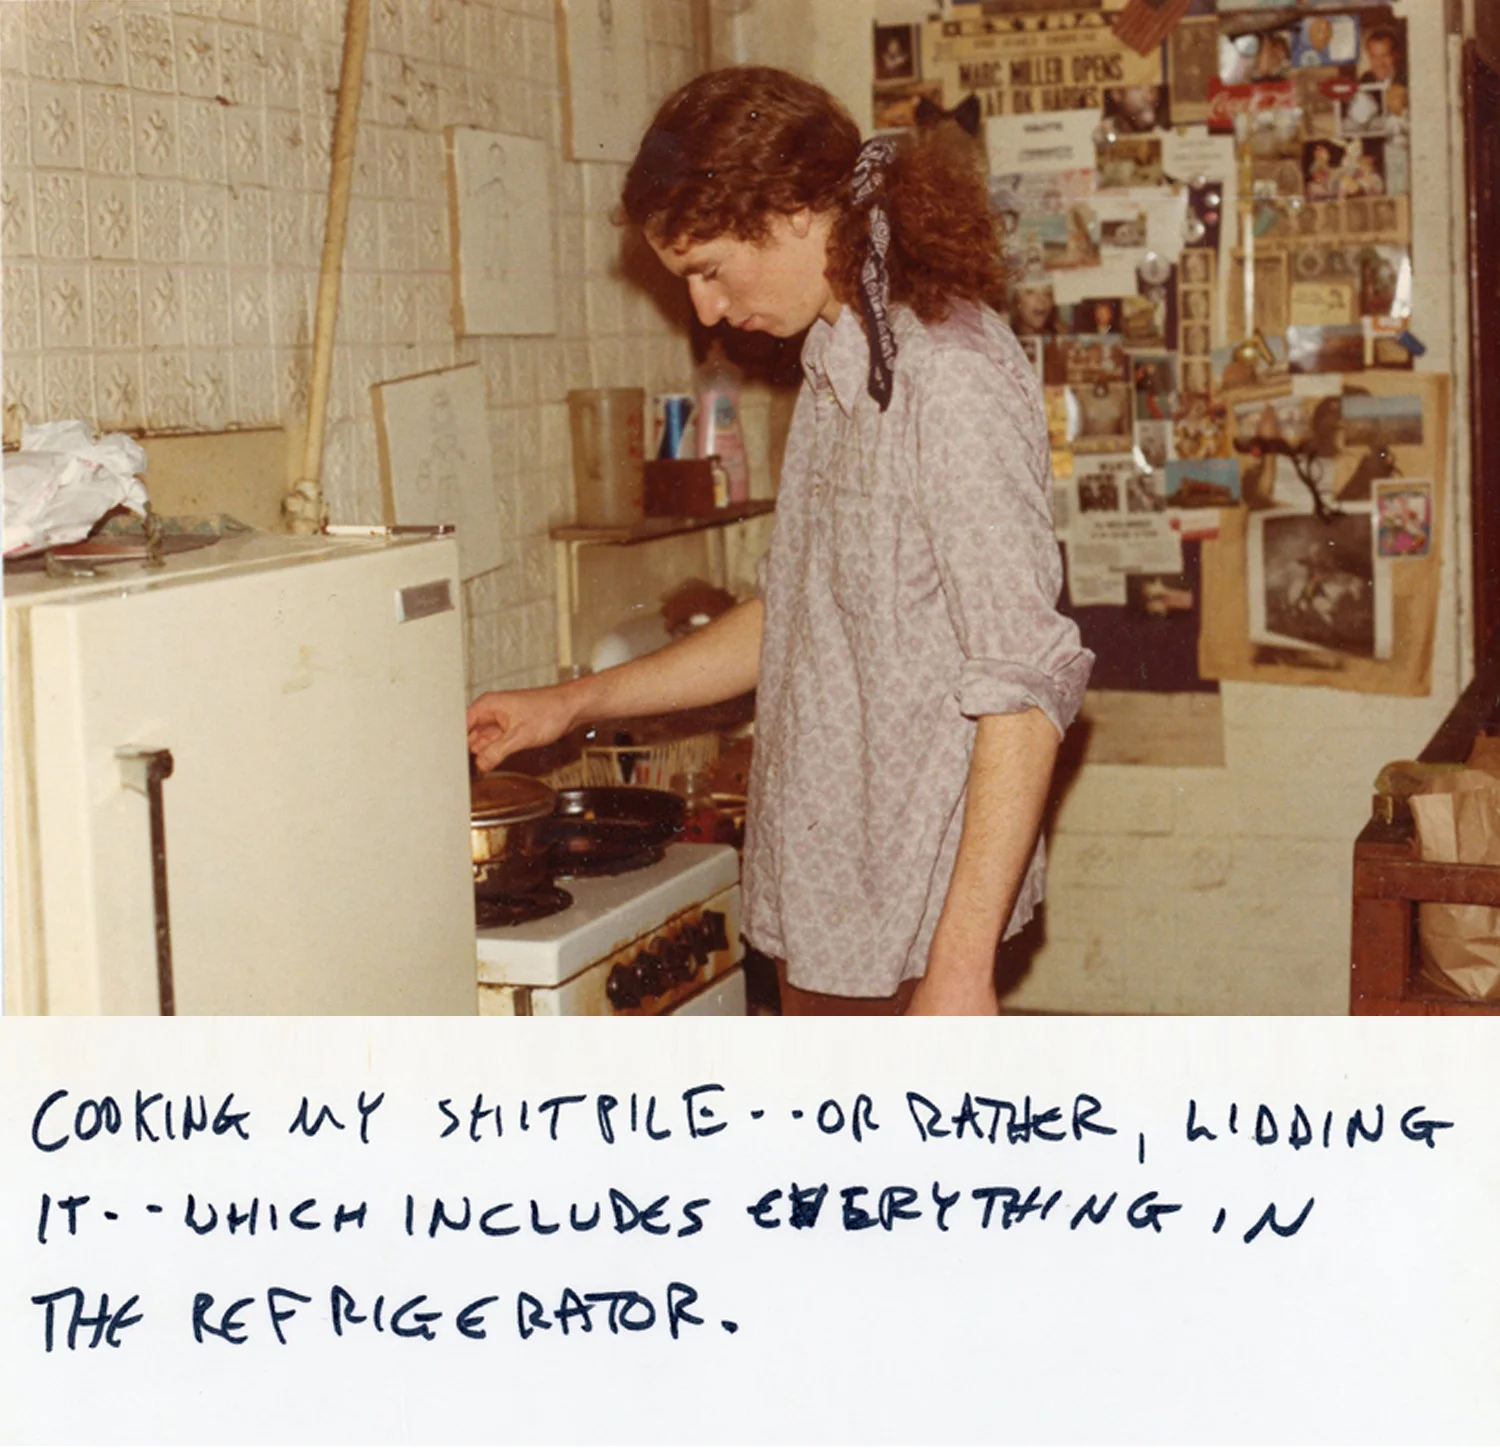 MARC MILLER OPENS
AT OK HARRIS
Coca-Cola
COOKING MY SHITPILE--OR RATHER, LIDDING
IT--WHICH INCLUDES EVERYTHING IN
THE REFRIGERATOR.